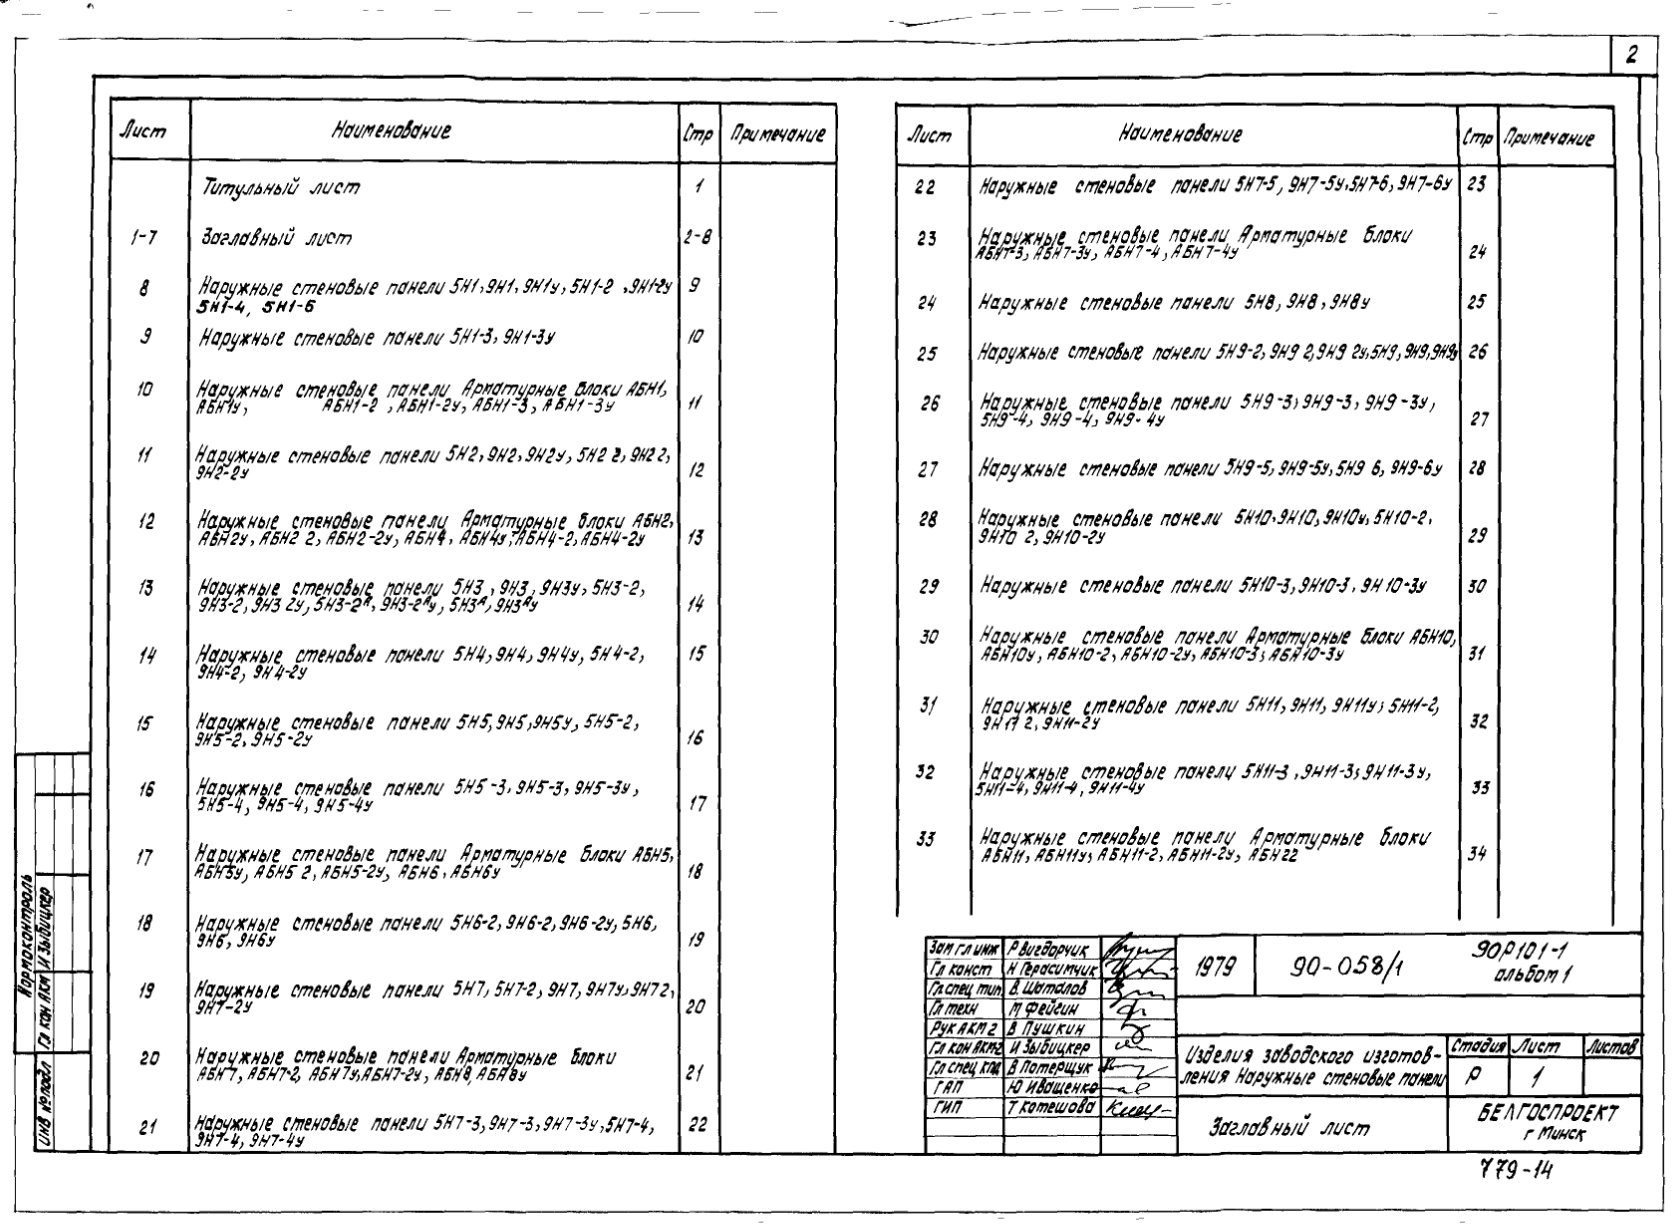 2
Лист Наименование Стр Примечание
Титульный лист 1
1-7 Заглавный лист 2-8
8 Наружные стеновые панели 5Н1, 9Н1, 9Н1у, 5Н1-2, 9Н1-2у 9
5Н1-4, 5Н1-6
9 Наружные стеновые панели 5Н1-3, 9Н1-3у 10
10 Наружные стеновые панели Арматурные блоки АБН1,
АБН1у, АБН1-2, АБН1-2у, АБН1-3, АБН1-3у 11
11 Наружные стеновые панели 5Н2, 9Н2, 9Н2у, 5Н2 2, 9Н2 2,
9Н2-2у 12
12 Наружные стеновые панели Арматурные блоки АБН2,
АБН2у, АБН2 2, АБН2-2у, АБН4, АБН4у, АБН4-2, АБН4-2у 13
13 Наружные стеновые панели 5Н3, 9Н3, 9Н3у, 5Н3-2,
9Н3-2, 9Н3 2у, 5Н3-2ᴬ, 9Н3-2ᴬу, 5Н3ᴬ, 9Н3ᴬу 14
14 Наружные стеновые панели 5Н4, 9Н4, 9Н4у, 5Н4-2, 15
9Н4-2, 9Н4-2у
15 Наружные стеновые панели 5Н5, 9Н5, 9Н5у, 5Н5-2,
9Н5-2, 9Н5-2у 16
16 Наружные стеновые панели 5Н5-3, 9Н5-3, 9Н5-3у,
5Н5-4, 9Н5-4, 9Н5-4у 17
17 Наружные стеновые панели Арматурные блоки АБН5,
АБН5у, АБН5 2, АБН5-2у, АБН6, АБН6у 18
18 Наружные стеновые панели 5Н6-2, 9Н6-2, 9Н6-2у, 5Н6,
9Н6, 9Н6у 19
19 Наружные стеновые панели 5Н7, 5Н7-2, 9Н7, 9Н7у, 9Н7 2,
9Н7-2у 20
20 Наружные стеновые панели Арматурные блоки
АБН7, АБН7-2, АБН7у, АБН7-2у, АБН8, АБН8у 21
21 Наружные стеновые панели 5Н7-3, 9Н7-3, 9Н7-3у, 5Н7-4, 22
9Н7-4, 9Н7-4у
Лист Наименование Стр Примечание
22 Наружные стеновые панели 5Н7-5, 9Н7-5у, 5Н7-6, 9Н7-6у 23
23 Наружные стеновые панели Арматурные блоки
АБН7-3, АБН7-3у, АБН7-4, АБН7-4у 24
24 Наружные стеновые панели 5Н8, 9Н8, 9Н8у 25
25 Наружные стеновые панели 5Н9-2, 9Н9 2, 9Н9 2у, 5Н9, 9Н9, 9Н9у 26
26 Наружные стеновые панели 5Н9-3, 9Н9-3, 9Н9-3у,
5Н9-4, 9Н9-4, 9Н9-4у 27
27 Наружные стеновые панели 5Н9-5, 9Н9-5у, 5Н9 6, 9Н9-6у 28
28 Наружные стеновые панели 5Н10, 9Н10, 9Н10у, 5Н10-2,
9Н10 2, 9Н10-2у 29
29 Наружные стеновые панели 5Н10-3, 9Н10-3, 9Н10-3у 30
30 Наружные стеновые панели Арматурные блоки АБН10,
АБН10у, АБН10-2, АБН10-2у, АБН10-3, АБН10-3у 31
31 Наружные стеновые панели 5Н11, 9Н11, 9Н11у, 5Н11-2,
9Н11 2, 9Н11-2у 32
32 Наружные стеновые панели 5Н11-3, 9Н11-3, 9Н11-3у,
5Н11-4, 9Н11-4, 9Н11-4у 33
33 Наружные стеновые панели Арматурные блоки
АБН11, АБН11у, АБН11-2, АБН11-2у, АБН22 34
Нормоконтроль
Гл кон АКМ И Зыбицкер
ИНВ № подл
Зам гл инж Р Вигдорчик
Гл конст Н Герасимчик
Гл спец тип В. Шаталов
Гл техн М Фейгин
Рук АКМ 2 В Пушкин
Гл кон АКМ2 И Зыбицкер
Гл спец кпд В Потерщук
ГАП Ю Иващенко
ГИП Т Котешова
1979 90-058/1 90Р101-1
альбом 1
Изделия заводского изготов-
ления Наружные стеновые панели
Стадия Лист Листов
Р 1
Заглавный лист
БЕЛГОСПРОЕКТ
г Минск
779-14